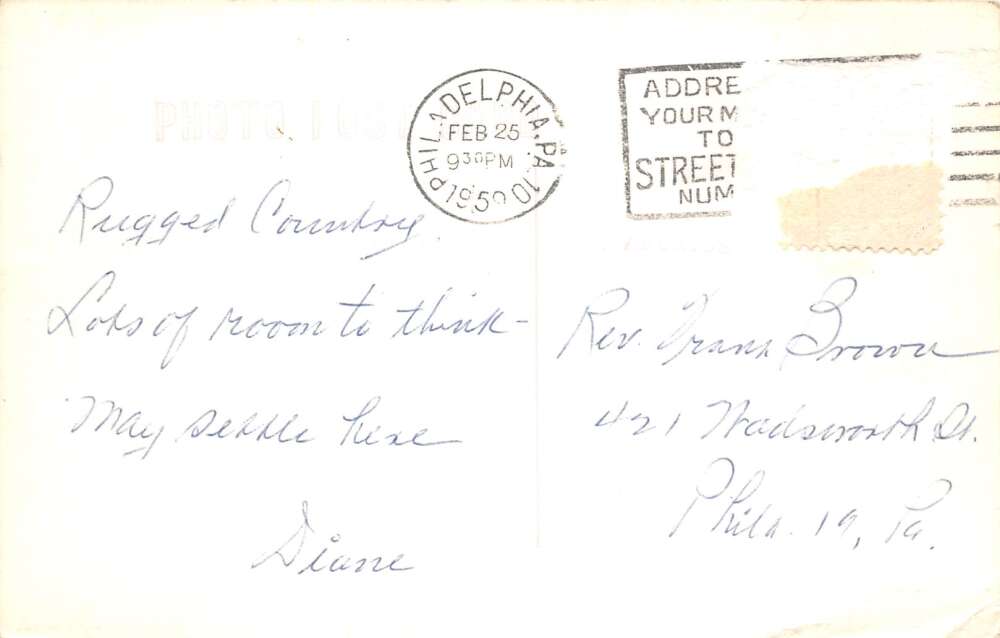 PHOTO POST
PHILADELPHIA, PA. 10
FEB 25
9 30 PM
1959
ADDRE
YOUR M
TO
STREET
NUM
Rugged Country.
Lots of room to think-
May settle here
Diane
Rev. Frank Brown
421 Wadsworth St.
Phila. 19, Pa.